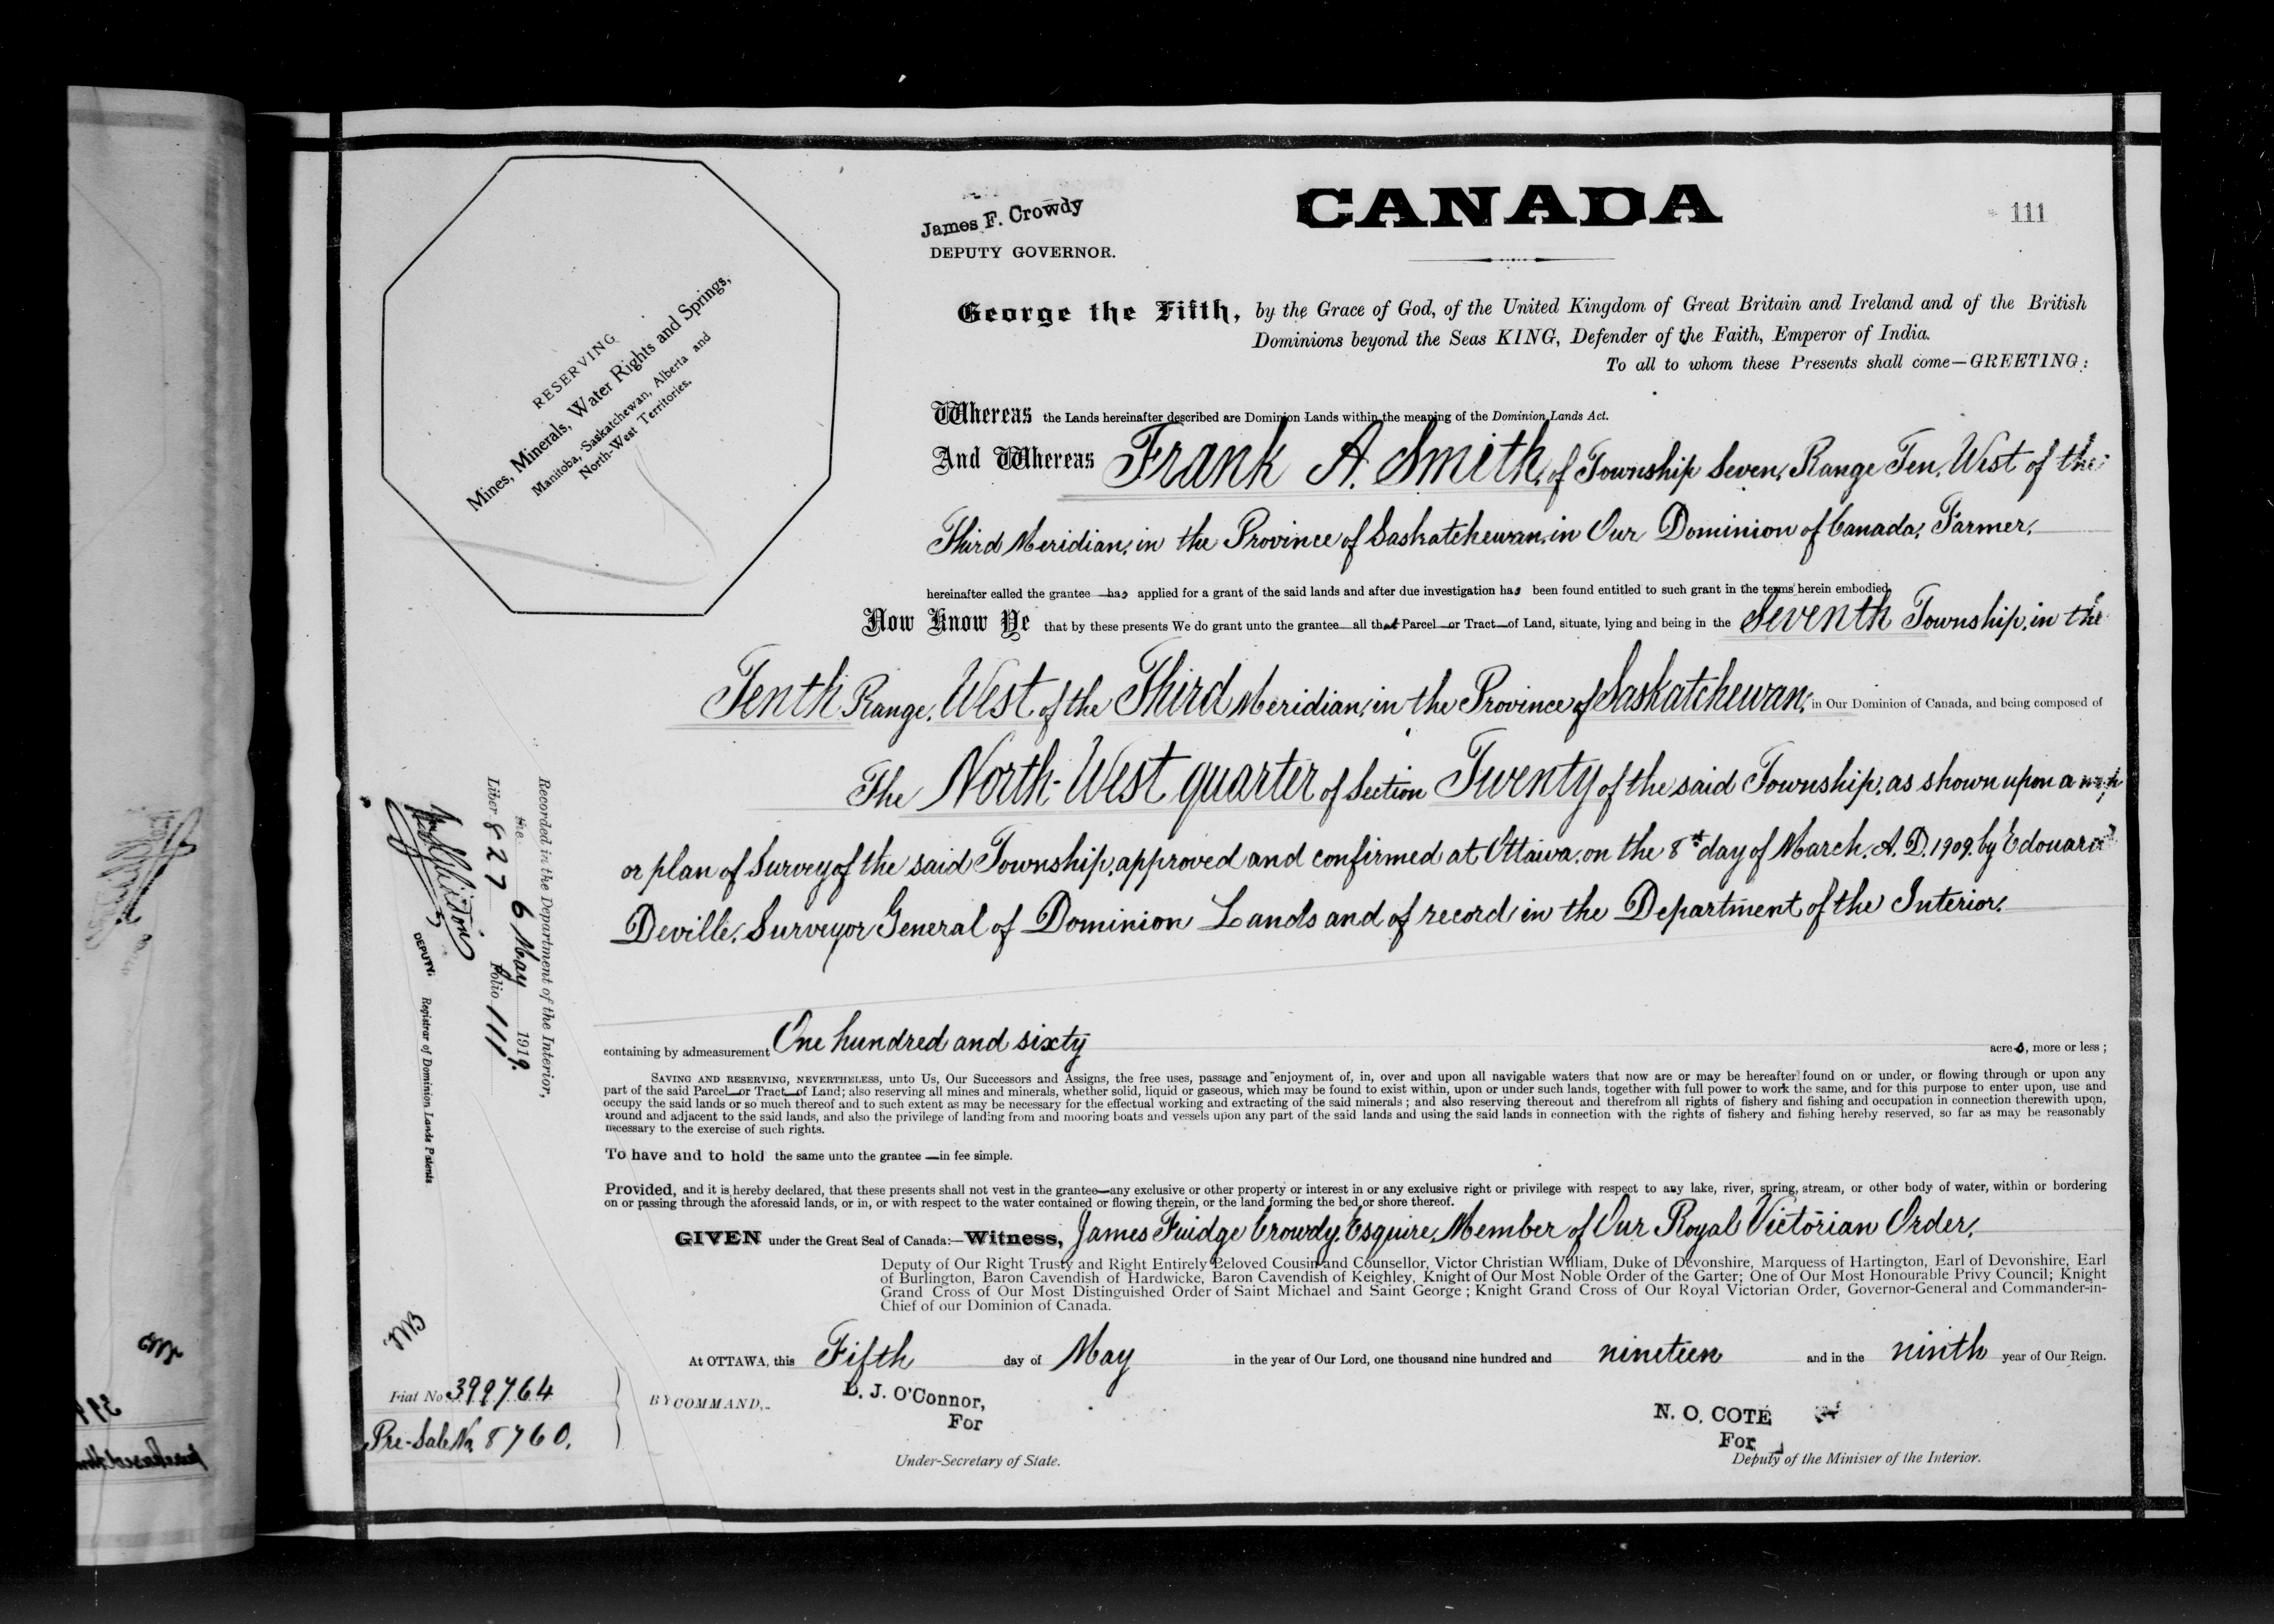 CANADA
111
James F. Crowdy
DEPUTY GOVERNOR.
RESERVING
Mines, Minerals, Water Rights and Springs,
Manitoba, Saskatchewan, Alberta and
North-West Territories.
George the Fifth, by the Grace of God, of the United Kingdom of Great Britain and Ireland and of the British
Dominions beyond the Seas KING, Defender of the Faith, Emperor of India.
To all to whom these Presents shall come—GREETING:
Whereas the Lands hereinafter described are Dominion Lands within the meaning of the Dominion Lands Act.
And Whereas Frank A. Smith, of Township Seven, Range Ten, West of the
Third Meridian, in the Province of Saskatchewan, in Our Dominion of Canada, Farmer,
hereinafter called the grantee has applied for a grant of the said lands and after due investigation has been found entitled to such grant in the terms herein embodied.
Now Know Ye that by these presents We do grant unto the grantee all that Parcel or Tract of Land, situate, lying and being in the Seventh Township, in the
Tenth Range, West of the Third Meridian, in the Province of Saskatchewan, in Our Dominion of Canada, and being composed of
The North-West quarter of Section Twenty of the said Township, as shown upon a map
or plan of Survey of the said Township, approved and confirmed at Ottawa, on the 8th day of March, A. D. 1909, by Edouard
Deville, Surveyor General of Dominion Lands and of record in the Department of the Interior.
containing by admeasurement One hundred and sixty acres, more or less;
SAVING AND RESERVING, NEVERTHELESS, unto Us, Our Successors and Assigns, the free uses, passage and enjoyment of, in, over and upon all navigable waters that now are or may be hereafter found on or under, or flowing through or upon any
part of the said Parcel or Tract of Land; also reserving all mines and minerals, whether solid, liquid or gaseous, which may be found to exist within, upon or under such lands, together with full power to work the same, and for this purpose to enter upon, use and
occupy the said lands or so much thereof and to such extent as may be necessary for the effectual working and extracting of the said minerals; and also reserving thereout and therefrom all rights of fishery and fishing and occupation in connection therewith upon,
around and adjacent to the said lands, and also the privilege of landing from and mooring boats and vessels upon any part of the said lands and using the said lands in connection with the rights of fishery and fishing hereby reserved, so far as may be reasonably
necessary to the exercise of such rights.
To have and to hold the same unto the grantee —in fee simple.
Provided, and it is hereby declared, that these presents shall not vest in the grantee—any exclusive or other property or interest in or any exclusive right or privilege with respect to any lake, river, spring, stream, or other body of water, within or bordering
on or passing through the aforesaid lands, or in, or with respect to the water contained or flowing therein, or the land forming the bed or shore thereof.
GIVEN under the Great Seal of Canada:—Witness, James Fuidge Crowdy, Esquire, Member of Our Royal Victorian Order,
Deputy of Our Right Trusty and Right Entirely Beloved Cousin and Counsellor, Victor Christian William, Duke of Devonshire, Marquess of Hartington, Earl of Devonshire, Earl
of Burlington, Baron Cavendish of Hardwicke, Baron Cavendish of Keighley, Knight of Our Most Noble Order of the Garter; One of Our Most Honourable Privy Council; Knight
Grand Cross of Our Most Distinguished Order of Saint Michael and Saint George; Knight Grand Cross of Our Royal Victorian Order, Governor-General and Commander-in-
Chief of our Dominion of Canada.
At OTTAWA, this Fifth day of May in the year of Our Lord, one thousand nine hundred and nineteen and in the ninth year of Our Reign.
BY COMMAND,
L. J. O'Connor,
For
Under-Secretary of State.
N. O. COTÉ
For
Deputy of the Minister of the Interior.
Recorded in the Department of the Interior,
the 6 May 1919.
Liber 827 Folio 111
DEPUTY. Registrar of Dominion Lands Patents
Fiat No 399764
Pre-Sale No 8760.